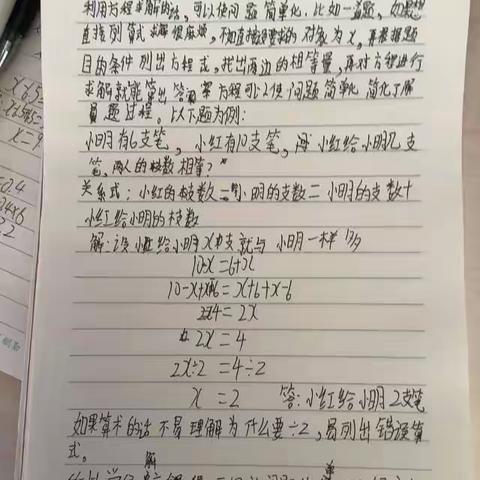 利用方程求解的话，可以使问题简单化．比如一道题，如果想
直接列算式求解很麻烦，不如直接设要求的对象为x，再根据题
目的条件列出方程式，找出两边的相等量，再对方程进行
求解就能算出答案 方程可以使问题简单化 简化了解
题过程。以下题为例：
小明有6支笔，小红有10支笔，小红给小明几支
笔，两人的枝数相等？
关系式：小红的枝数－小明的支数＝小明的支数＋
小红给小明的枝数
解：设小红给小明x支就与小明一样多
10-x=6+x
10-x+x-6=x+6+x-6
4=2x
2x=4
2x÷2=4÷2
x=2 答：小红给小明2支笔
如果算术的话不易理解为什么要÷2，易列出错误算
式。
x=9